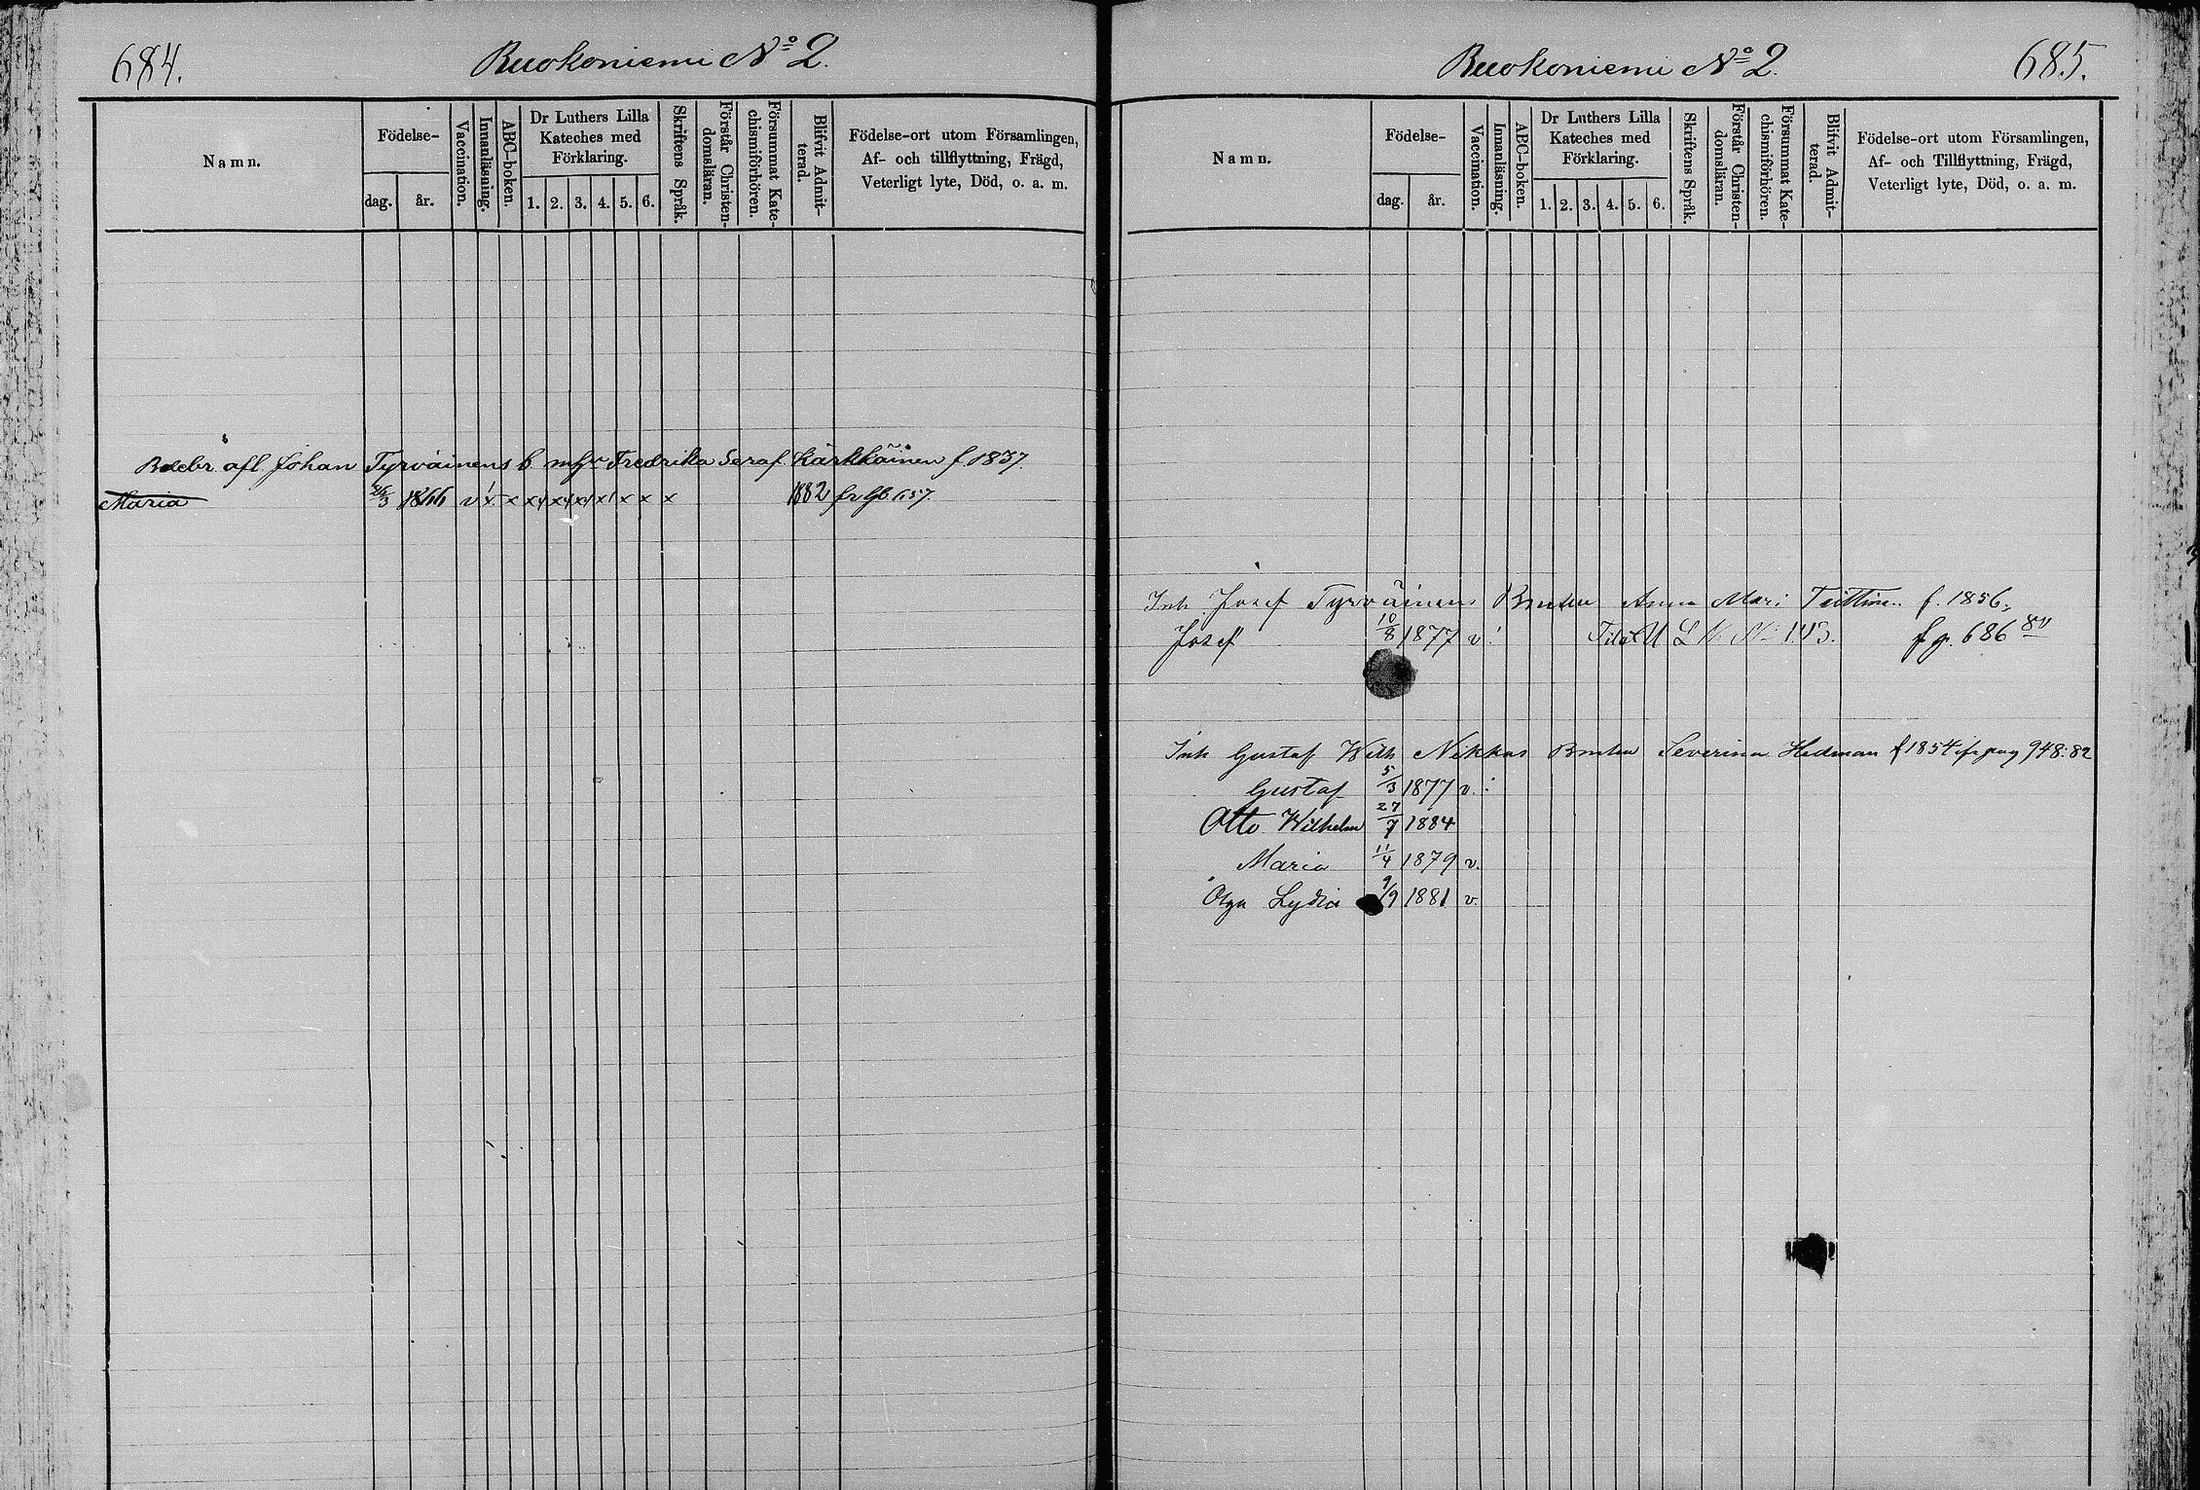 684.
Ruokoniemi No 2.
Namn.
Födelse-
dag.
år.
Vaccination.
Innanläsning.
ABC-boken.
Dr Luthers Lilla
Kateches med
Förklaring.
1. 2. 3. 4. 5. 6.
Skriftens Språk.
Förstår Christen-
domsläran.
Försummat Kate-
chismiförhören.
Blifvit Admit-
terad.
Födelse-ort utom Församlingen,
Af- och tillflyttning, Frägd,
Veterligt lyte, Död, o. a. m.
afl Johan Tyrväinens Fredrika Seraf. Kärkkäinen f 1837.
Maria 1866 v x x x x x 1882 657.
Ruokoniemi No 2.
685.
Namn.
Födelse-
dag.
år.
Vaccination.
Innanläsning.
ABC-boken.
Dr Luthers Lilla
Kateches med
Förklaring.
1. 2. 3. 4. 5. 6.
Skriftens Språk.
Förstår Christen-
domsläran.
Försummat Kate-
chismiförhören.
Blifvit Admit-
terad.
Födelse-ort utom Församlingen,
Af- och Tillflyttning, Frägd,
Veterligt lyte, Död, o. a. m.
Inh Josef Tyrväinens Anna Mari f. 1856.
Josef 10/8 1877 v f p. 686
Inh Gustaf Wilh Nikkus Severina Hedman f 1854 948:82
Gustaf 5/3 1877 v.
Otto Wilhelm 27/7 1884
Maria 11/4 1879 v.
Olga Lydia 9/9 1881 v.